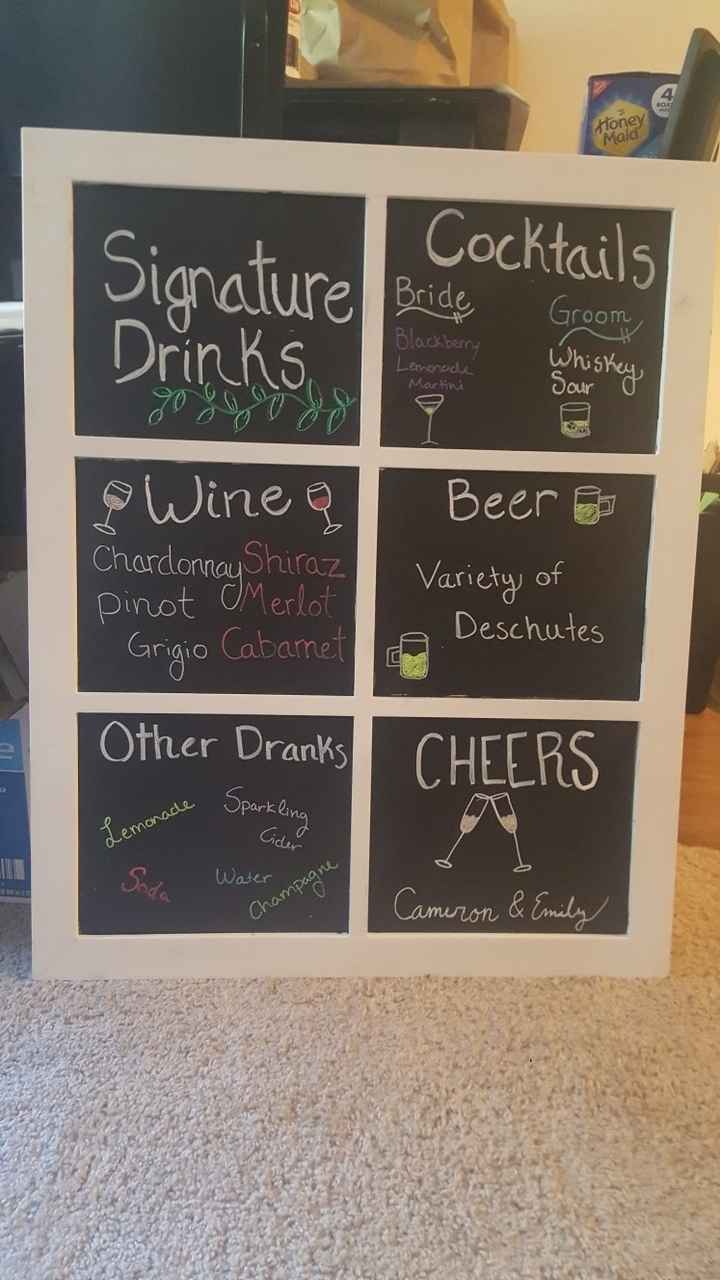 Honey
Maid
4
Signature
Drinks
Cocktails
Bride
Blackberry
Lemonade
Martini
Groom
Whiskey
Sour
Wine
Chardonnay Shiraz
Pinot Merlot
Grigio Cabarnet
Beer
Variety of
Deschutes
Other Dranks
Lemonade
Sparkling
Cider
Soda
Water
Champagne
CHEERS
Cameron & Emily